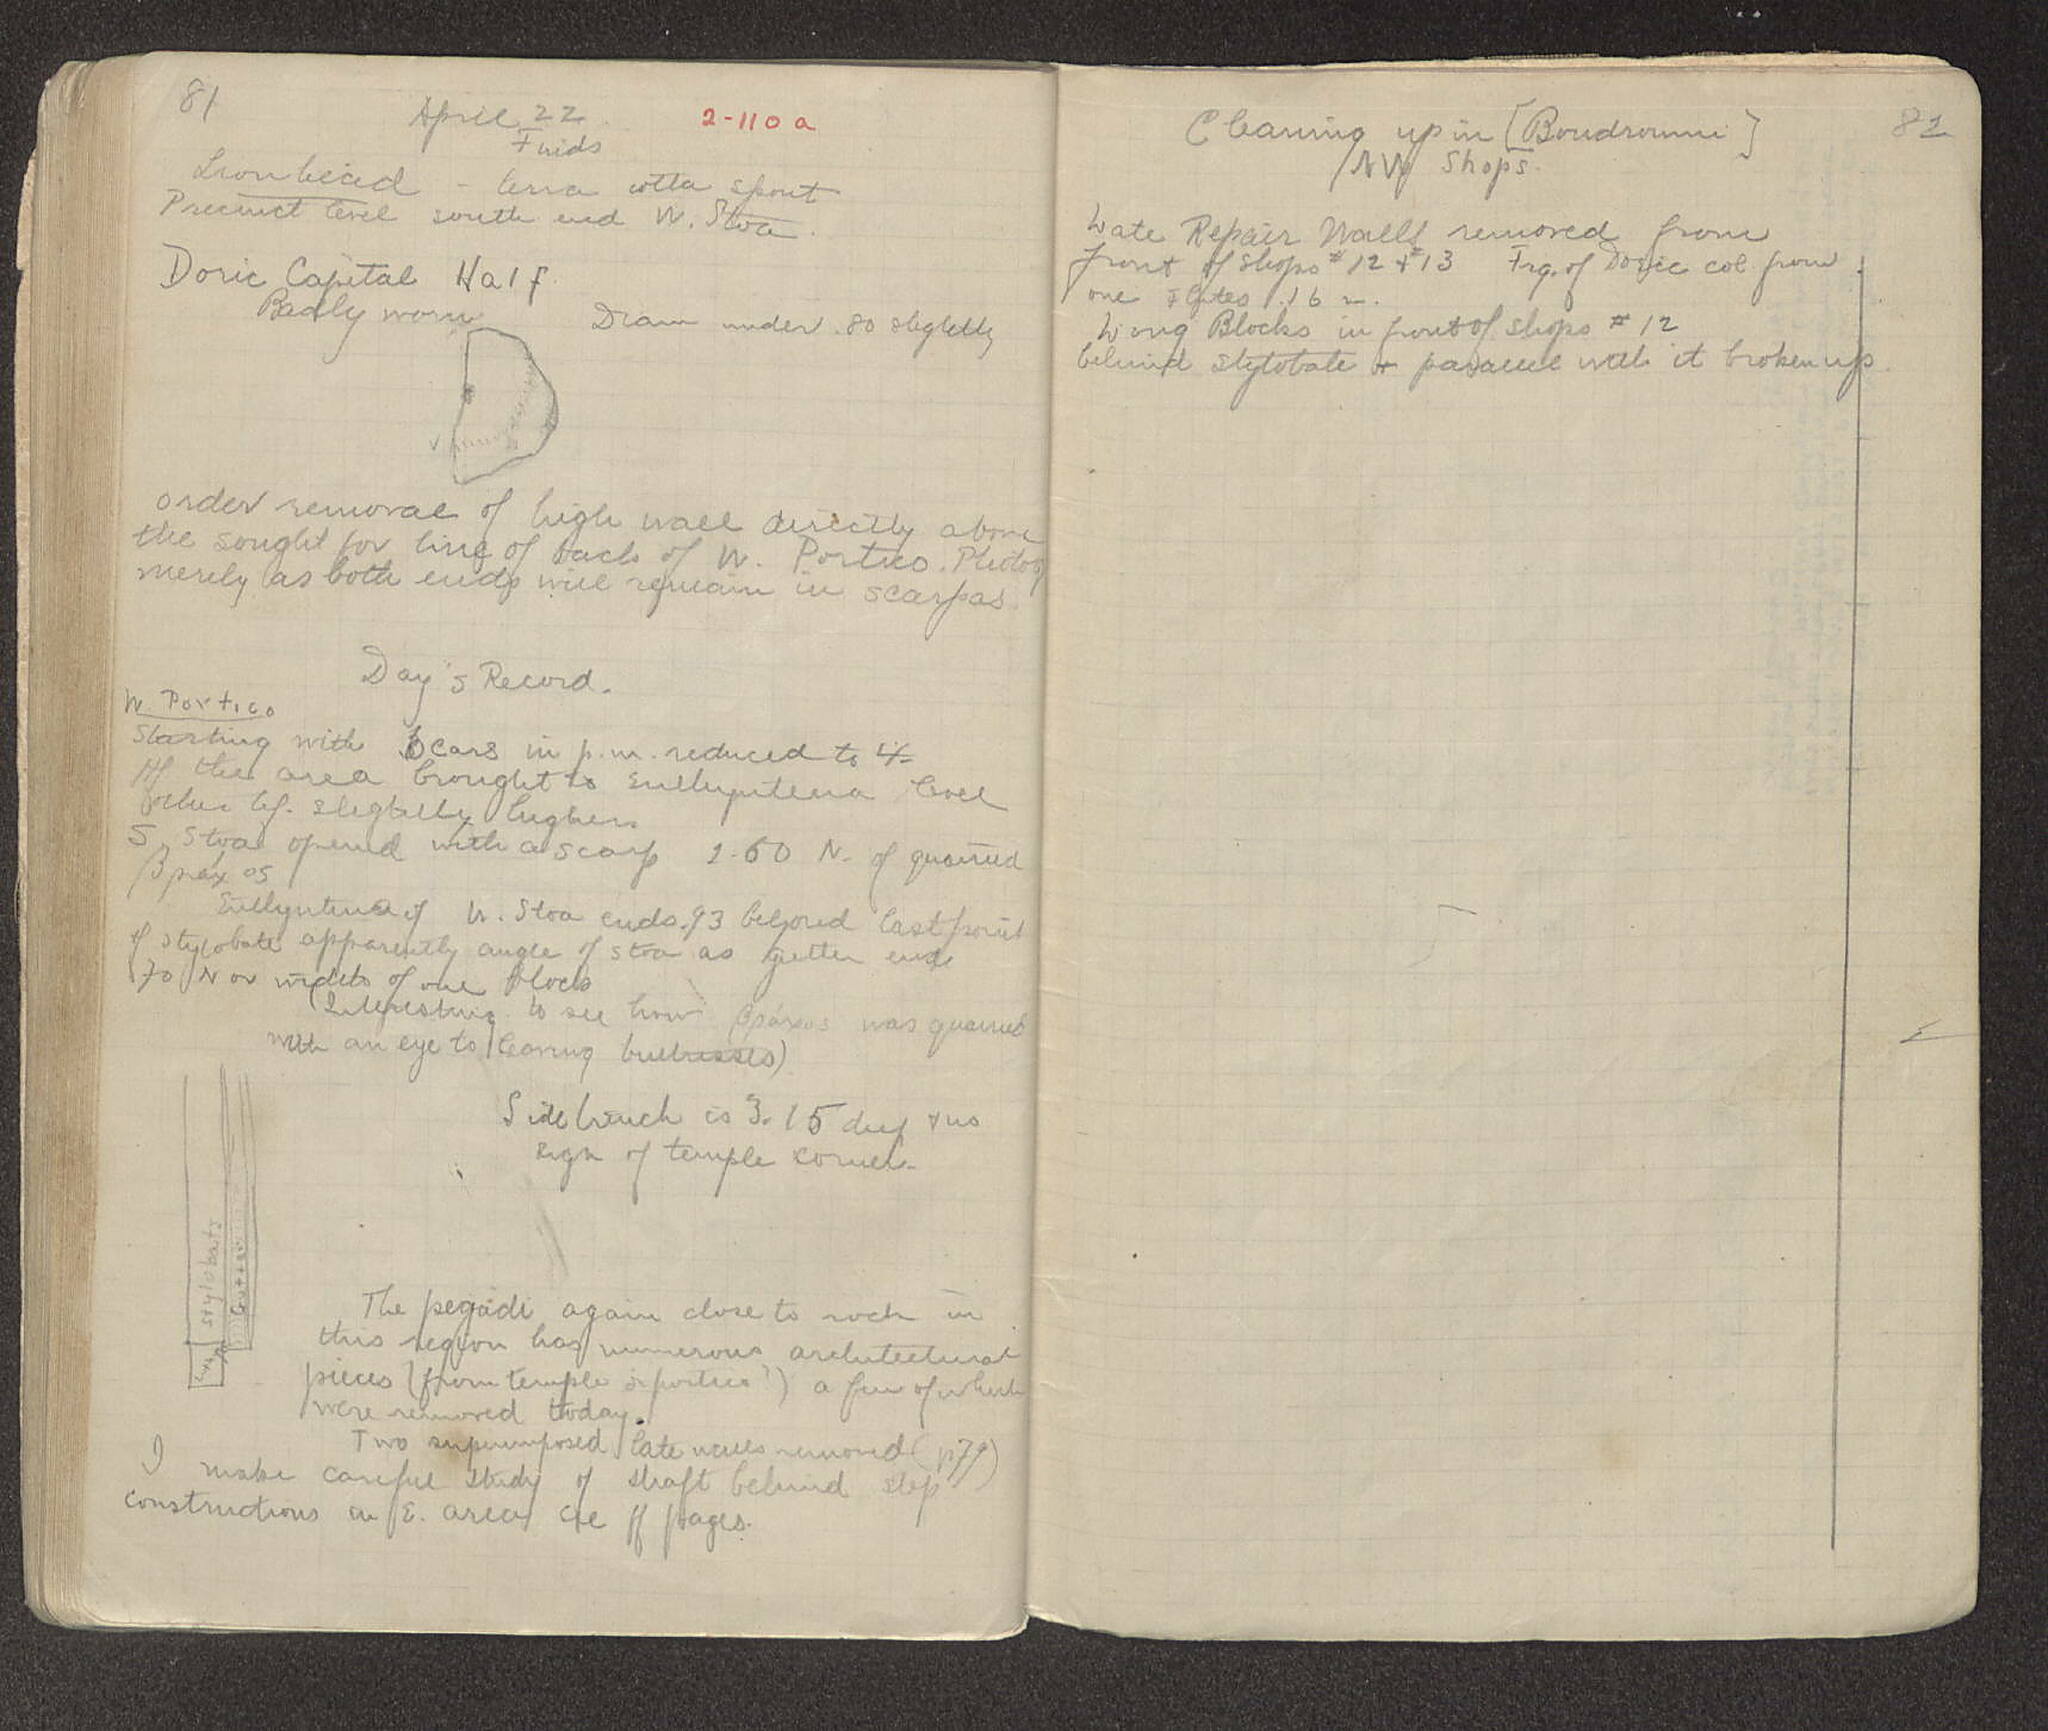 81
April 22
2-110 a
Finds
Lion head - terra cotta spout
Precinct level south end W. Stoa.
Doric Capital Half.
Badly worn
Diam under .80 slightly
order removal of high wall directly above
the sought for line of back of W. Portico. Photog
merely as both ends will remain in scarpas.
Day's Record.
W. Portico
Starting with cars in p.m. reduced to 4
the area brought to Euthynteria level
other hf. slightly higher.
S. Stoa opened with a scarp 2.60 N. of quarried
βράχος
Euthynteria of W. Stoa ends .93 beyond last point
of stylobate apparently angle of stoa as gutter ends
.70 N or width of one block
(Interesting to see how βράχος was quarried
with an eye to leaving buttresses)
Side trench is 3.15 deep + no
sign of temple corner.
stylobate
Gutter
The pegádi again close to rock in
this region has numerous architectural
pieces (from temple & portico?) a few of which
were removed today.
Two superimposed late walls removed (p79)
I make careful study of shaft behind step
constructions in E. area ff pages.
82
Cleaning up in [Boudroumi]
NW Shops.
Late Repair Walls removed from
front of shops #12 + #13 Frg. of Doric col from
one Flutes .16 m.
Long Blocks in front of shops #12
behind stylobate + parallel with it broken up.